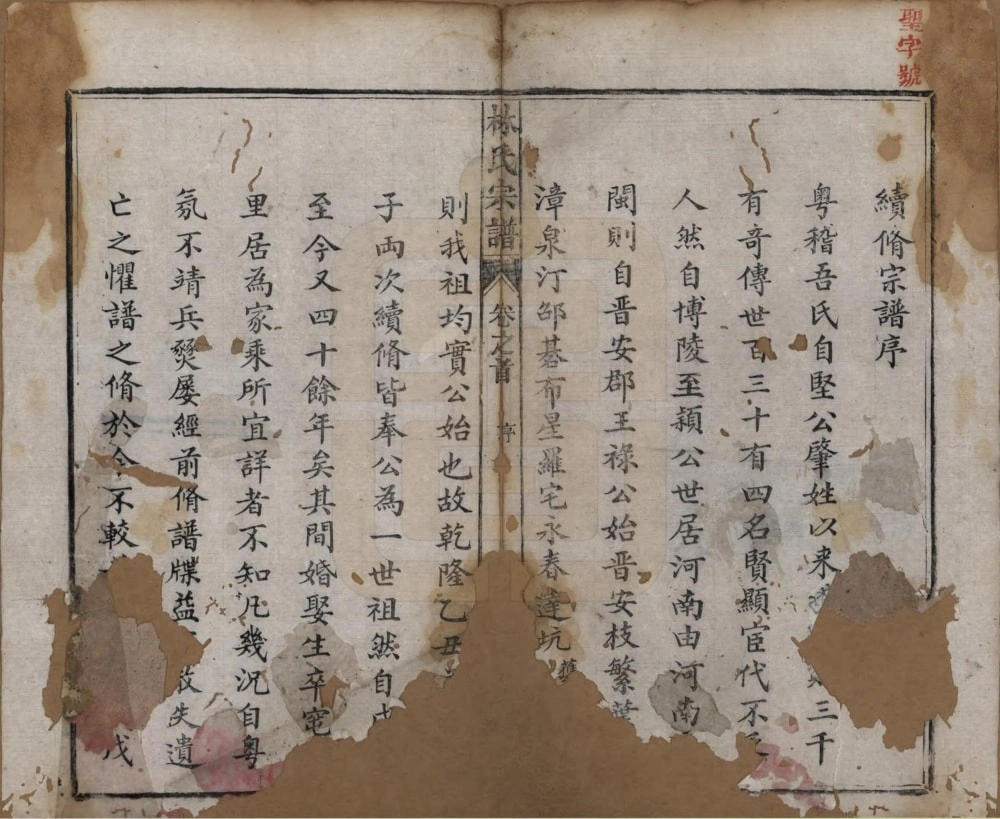 聖字號
續脩宗譜序
粵稽吾氏自堅公肇姓以来三千
有奇傳世百三十有四名賢顯宦代不
人然自博陵至潁公世居河南由河南
閩則自晋安郡王祿公始晋安枝繁葉
漳泉汀邵碁布星羅宅永春達坑
林氏宗譜 卷之首 序
則我祖均實公始也故乾隆乙丑
子両次續脩皆奉公為一世祖然自戊
至今又四十餘年矣其間婚娶生卒窀
里居為家乘所宜詳者不知凡幾況自粵
氛不靖兵燹屡經前脩譜牒益散失遺
亡之懼譜之脩於今不較戊